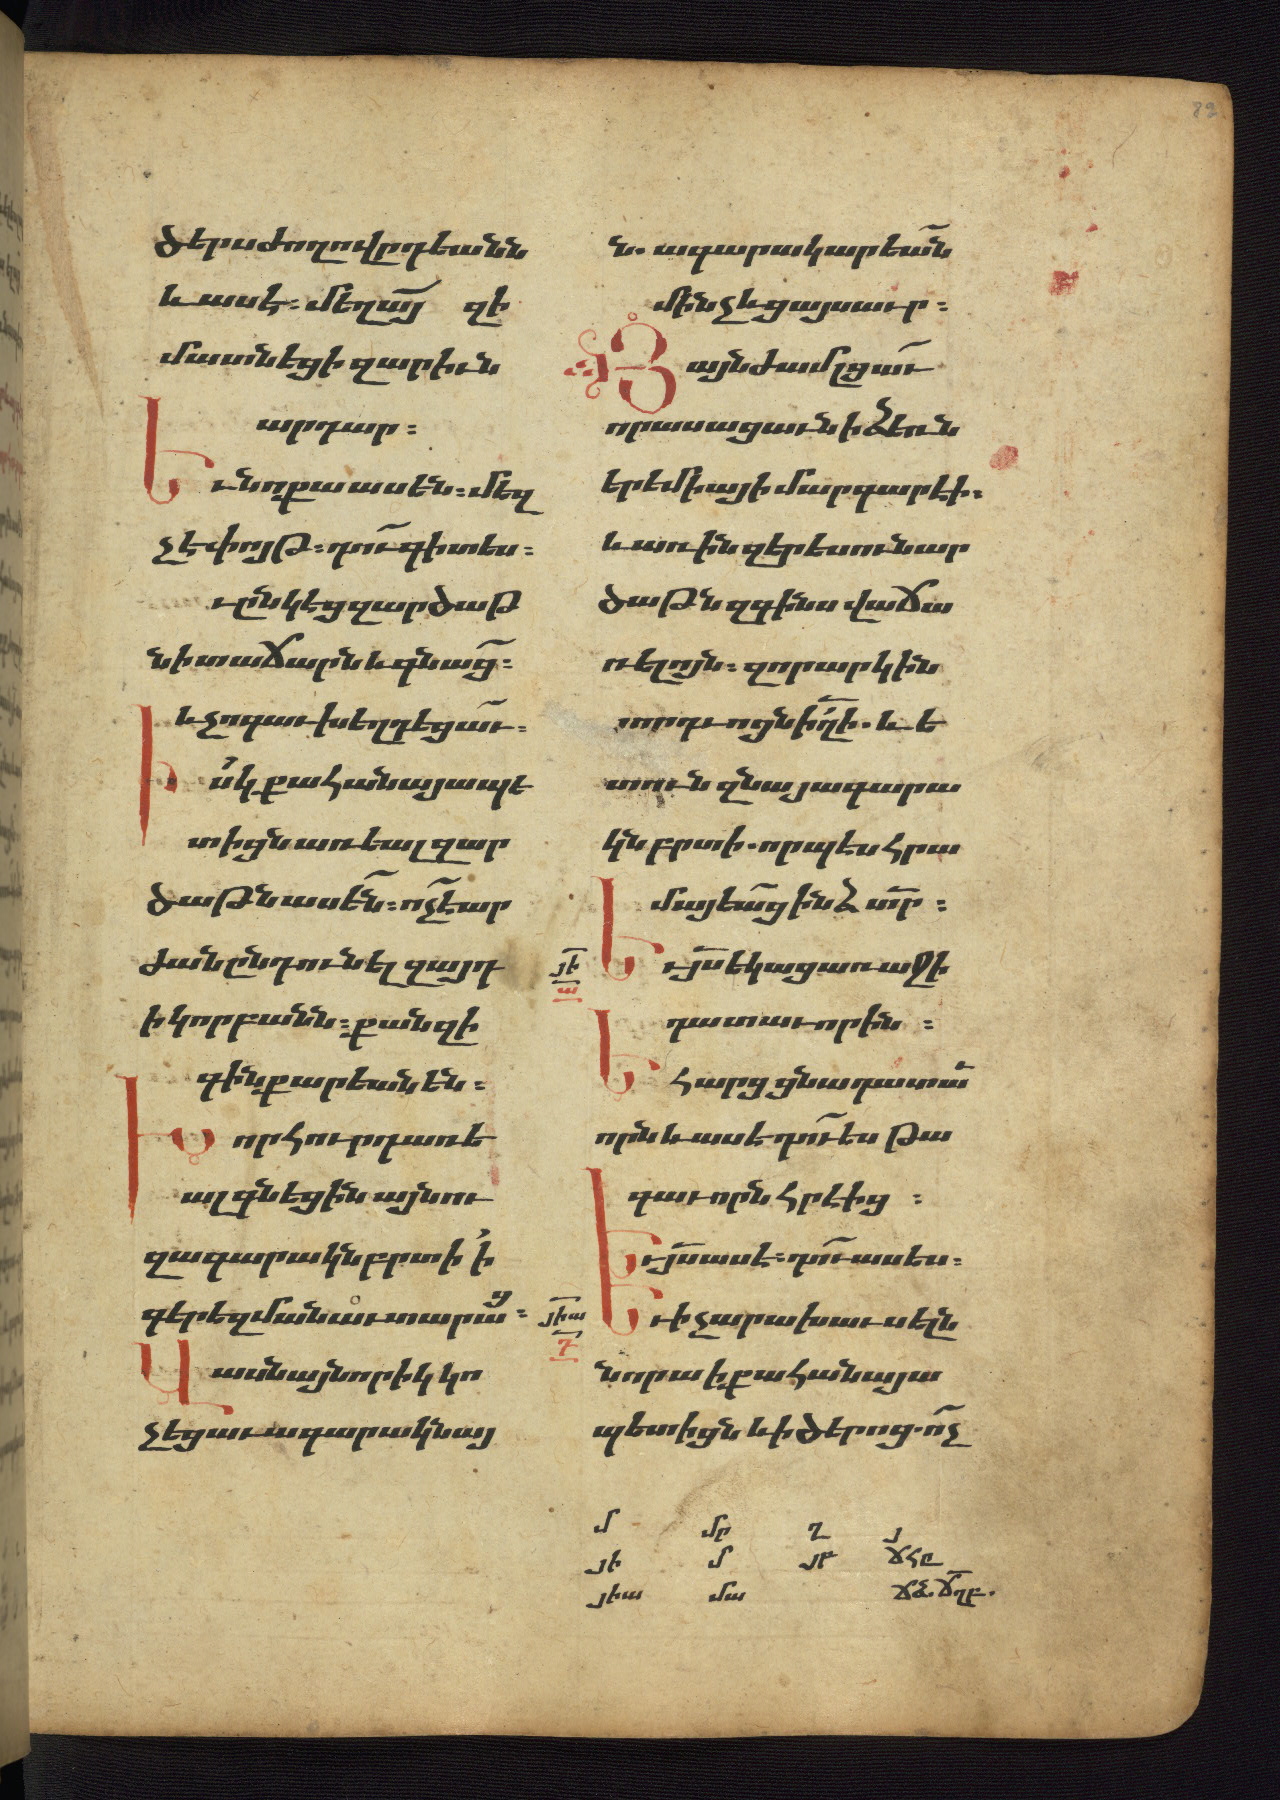 ծերս ժողովըդեանն
և ասէ. մեղայ̄ զի
մատնեցի զարիւն
արդար։
Եւ նոքա ասեն. մեզ
չէ փոյթ. դու̄ գիտես։
ւ ընկէց զարծաթ
ն ի տաճարն և գնաց̄։
և չոգաւ խեղդեցաւ̄։
Իսկ քահանայապե
տիցն առեալ զար
ծաթն ասեն̄. ոչ̄ է ար
ժան ընդունել զայդ
ի կորբանն. քանզի
գինք արեան են։
Խորհուրդ առե
ալ գնեցին այնու
զագարակն բրտի ի
գերեզմանաւտարաց։
Վասն այնորիկ կո
չեցաւ ագարակն այ
ն. ագարակ արեան̄
մինչև ցայսաւր։
Յայնժամ լցաւ̄
որ ասացաւն ի ձեռն
երեմիայի մարգարէի.
և առին զերեսուն ար
ծաթն զգինս վաճա
ռելոյն. զոր արկին
յորդւոցն ի̄ղի. և ե
տուն զնա յագարա
կն բրտի. որպէս հրա
մայեաց̄ ինձ տր̄։
Եւ յս̄ եկաց առաջի
դատաւորին։
Եհարց ցնա դատաւ
որն և ասէ դու̄ ես թա
գաւորն հրէից։
Եւ յս̄ ասէ. դու̄ ասես։
Եւ ի չարախաւսելն
նորա ի քահանայա
պետիցն և ի ծերոց. ոչ̄
յի
ա
յիա
դ
մ մը ղ յ
յի մ յբ ճհը
յիա մա ճձ. ճղբ.